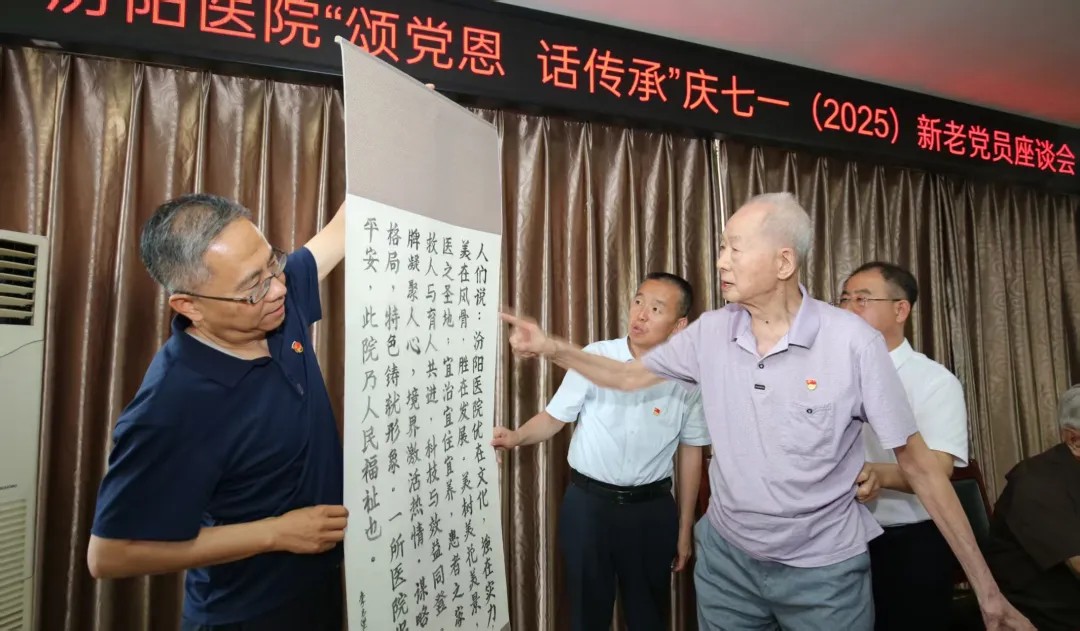 汾阳医院“颂党恩 话传承”庆七一（2025）新老党员座谈会
人们说：汾阳医院优在文化，强在实力
美在风骨，胜在发展。美树美花美景，
医之圣地；宜治宜住宜养，患者之家
救人与育人共进，科技与效益同登
牌凝聚人心，境界激活热情，谋略
格局，特色铸就形象。一所医院
平安，此院乃人民福祉也。